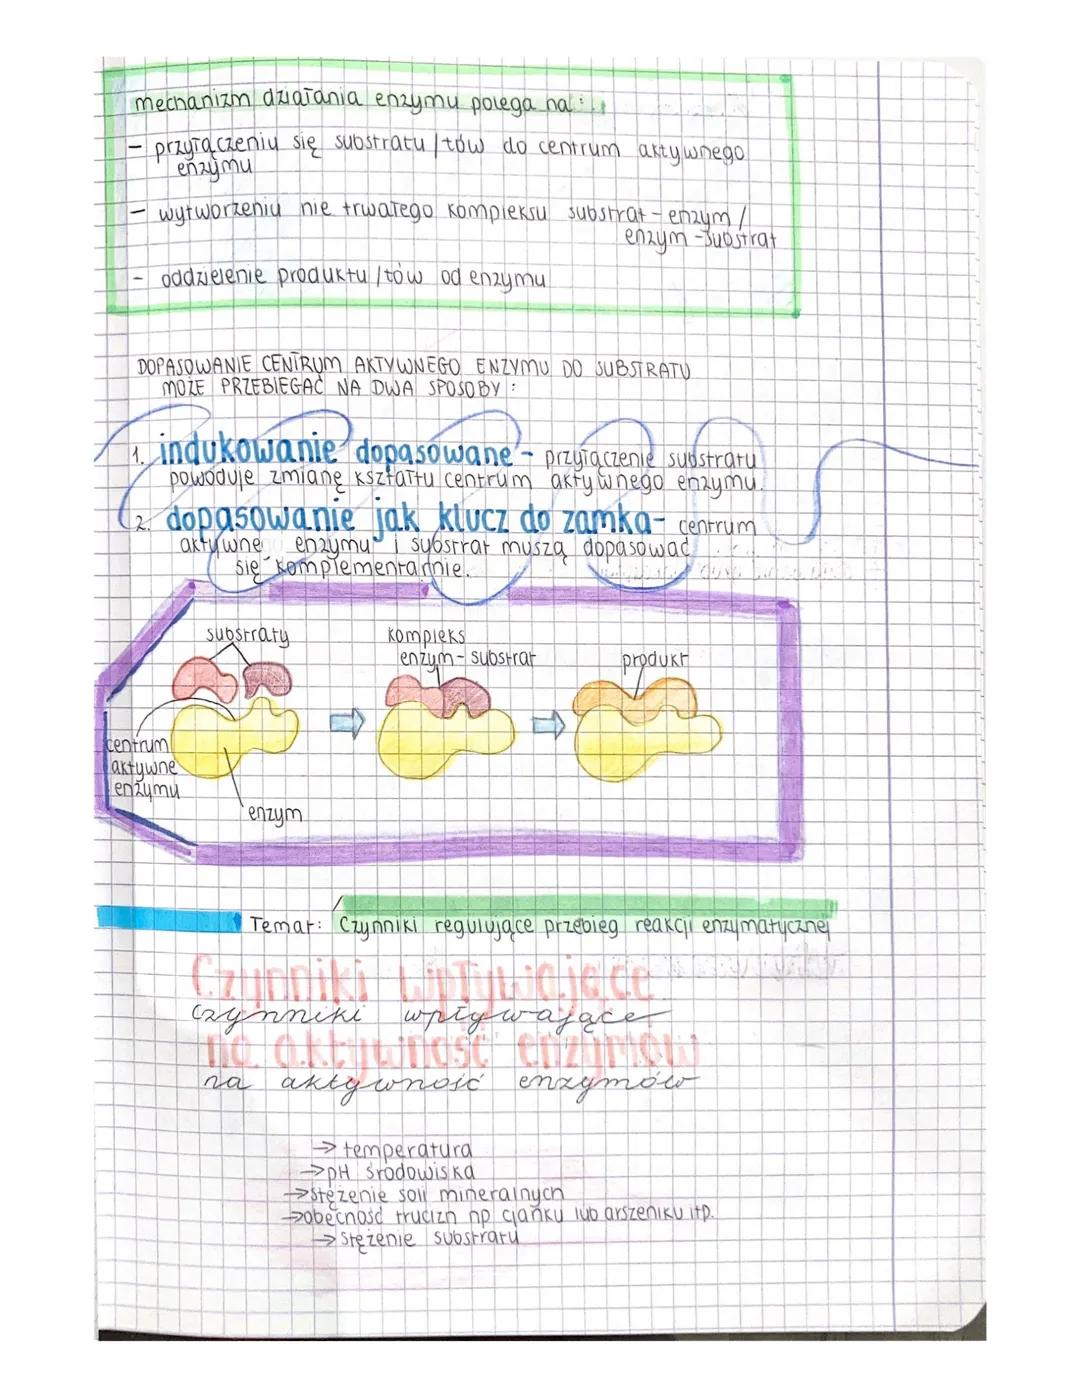 mechanizm działania enzymu polega na:
- przyłączeniu się substratu/tów do centrum aktywnego
enzymu
- wytworzeniu nie trwałego kompleksu substrat-enzym/
enzym-substrat
- oddzielenie produktu/tów od enzymu
DOPASOWANIE CENTRUM AKTYWNEGO ENZYMU DO SUBSTRATU
MOŻE PRZEBIEGAĆ NA DWA SPOSOBY:
1. indukowanie dopasowane - przyłączenie substratu
powoduje zmianę kształtu centrum aktywnego enzymu.
2. dopasowanie jak klucz do zamka - centrum
aktywne enzymu i substrat muszą dopasować
się komplementarnie.
substraty
kompleks
enzym-substrat
produkt
centrum
aktywne
enzymu
enzym
Temat: Czynniki regulujące przebieg reakcji enzymatycznej
Czynniki wpływające
czynniki wpływające
na aktywność enzymów
na aktywność enzymów
→ temperatura
→ pH środowiska
→ stężenie soli mineralnych
→ obecność trucizn np cjanku lub arszeniku itp.
→ stężenie substratu